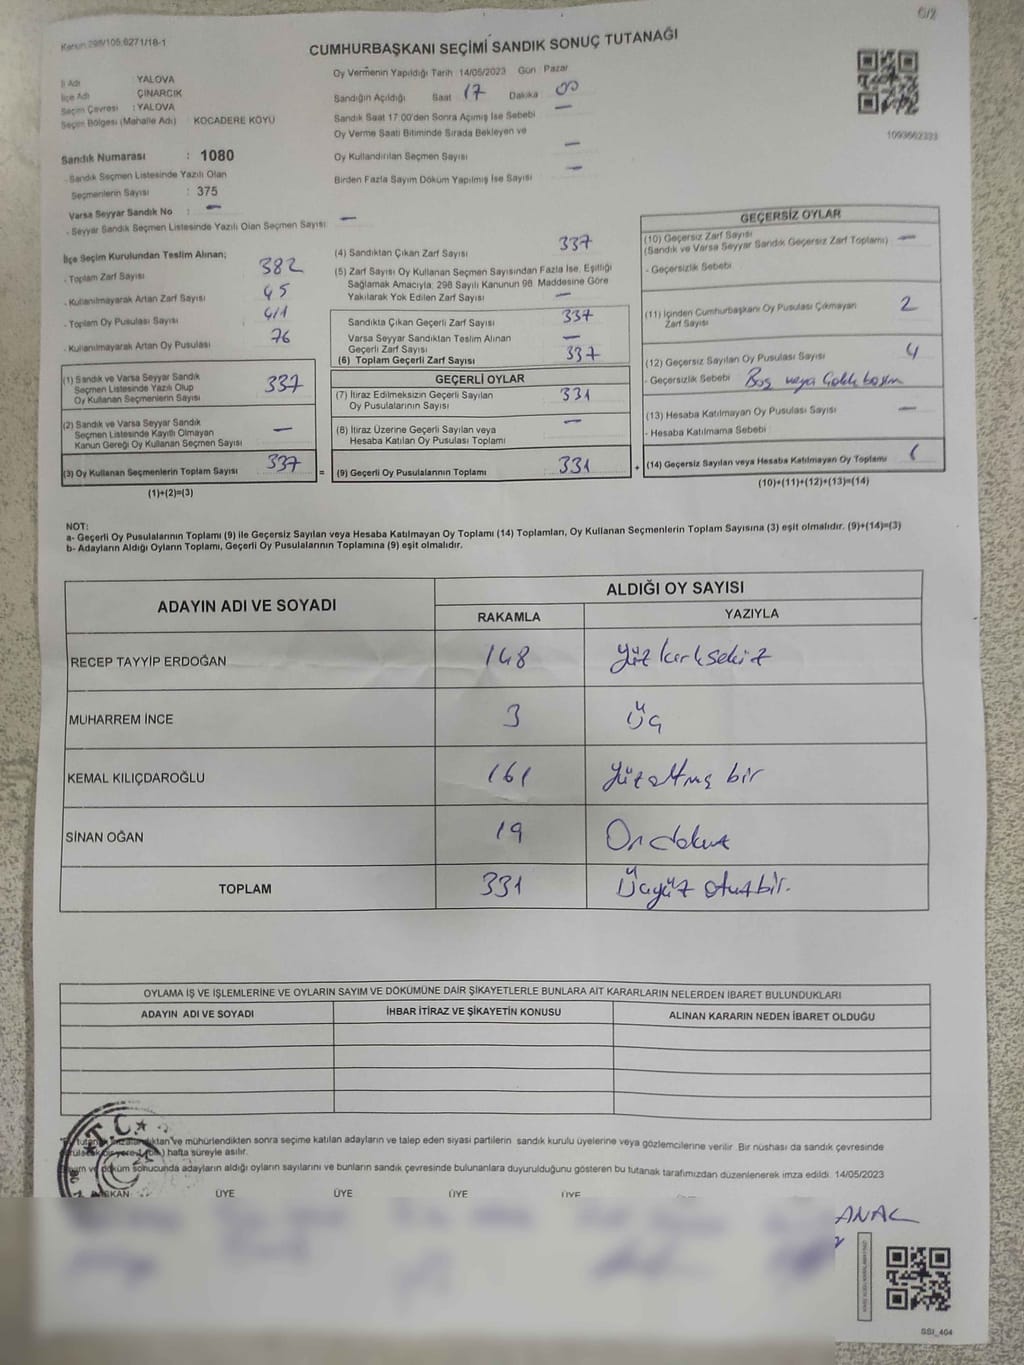 6/2
Kanun 298/105,6271/18-1
CUMHURBAŞKANI SEÇİMİ SANDIK SONUÇ TUTANAĞI
İl Adı : YALOVA
İlçe Adı : ÇINARCIK
Seçim Çevresi : YALOVA
Seçim Bölgesi (Mahalle Adı) KOCADERE KÖYÜ
Sandık Numarası : 1080
- Sandık Seçmen Listesinde Yazılı Olan
Seçmenlerin Sayısı : 375
Varsa Seyyar Sandık No : –
- Seyyar Sandık Seçmen Listesinde Yazılı Olan Seçmen Sayısı : –
Oy Vermenin Yapıldığı Tarih 14/05/2023 Gün Pazar
Sandığın Açıldığı Saat 17 Dakika 00
Sandık Saat 17:00'den Sonra Açımış İse Sebebi –
Oy Verme Saati Bitiminde Sırada Bekleyen ve
Oy Kullandırılan Seçmen Sayısı –
Birden Fazla Sayım Döküm Yapılmış İse Sayısı –
1093662333
İlçe Seçim Kurulundan Teslim Alınan;
- Toplam Zarf Sayısı 382
- Kullanılmayarak Artan Zarf Sayısı 45
- Toplam Oy Pusulası Sayısı 411
- Kullanılmayarak Artan Oy Pusulası 76
(1) Sandık ve Varsa Seyyar Sandık
Seçmen Listesinde Yazılı Olup
Oy Kullanan Seçmenlerin Sayısı 337
(2) Sandık ve Varsa Seyyar Sandık
Seçmen Listesinde Kayıtlı Olmayan
Kanun Gereği Oy Kullanan Seçmen Sayısı –
(3) Oy Kullanan Seçmenlerin Toplam Sayısı 337 =
(1)+(2)=(3)
(4) Sandıktan Çıkan Zarf Sayısı 337
(5) Zarf Sayısı Oy Kullanan Seçmen Sayısından Fazla İse, Eşitliği
Sağlamak Amacıyla; 298 Sayılı Kanunun 98. Maddesine Göre
Yakılarak Yok Edilen Zarf Sayısı –
Sandıkta Çıkan Geçerli Zarf Sayısı 337
Varsa Seyyar Sandıktan Teslim Alınan
Geçerli Zarf Sayısı –
(6) Toplam Geçerli Zarf Sayısı 337
GEÇERLİ OYLAR
(7) İtiraz Edilmeksizin Geçerli Sayılan
Oy Pusulalarının Sayısı 331
(8) İtiraz Üzerine Geçerli Sayılan veya
Hesaba Katılan Oy Pusulası Toplamı –
(9) Geçerli Oy Pusulalarının Toplamı 331 +
GEÇERSİZ OYLAR
(10) Geçersiz Zarf Sayısı
(Sandık ve Varsa Seyyar Sandık Geçersiz Zarf Toplamı) –
- Geçersizlik Sebebi
(11) İçinden Cumhurbaşkanı Oy Pusulası Çıkmayan
Zarf Sayısı 2
(12) Geçersiz Sayılan Oy Pusulası Sayısı 4
- Geçersizlik Sebebi Boş veya
(13) Hesaba Katılmayan Oy Pusulası Sayısı –
- Hesaba Katılmama Sebebi
(14) Geçersiz Sayılan veya Hesaba Katılmayan Oy Toplamı
(10)+(11)+(12)+(13)=(14)
NOT:
a- Geçerli Oy Pusulalarının Toplamı (9) ile Geçersiz Sayılan veya Hesaba Katılmayan Oy Toplamı (14) Toplamları, Oy Kullanan Seçmenlerin Toplam Sayısına (3) eşit olmalıdır. (9)+(14)=(3)
b- Adayların Aldığı Oyların Toplamı, Geçerli Oy Pusulalarının Toplamına (9) eşit olmalıdır.
ADAYIN ADI VE SOYADI
ALDIĞI OY SAYISI
RAKAMLA YAZIYLA
RECEP TAYYİP ERDOĞAN 148 yüz kırk sekiz
MUHARREM İNCE 3 Üç
KEMAL KILIÇDAROĞLU 161 yüz altmış bir
SİNAN OĞAN 19 On dokuz
TOPLAM 331 Üçyüz otuzbir.
OYLAMA İŞ VE İŞLEMLERİNE VE OYLARIN SAYIM VE DÖKÜMÜNE DAİR ŞİKAYETLERLE BUNLARA AİT KARARLARIN NELERDEN İBARET BULUNDUKLARI
ADAYIN ADI VE SOYADI İHBAR İTİRAZ VE ŞİKAYETİN KONUSU ALINAN KARARIN NEDEN İBARET OLDUĞU
T.C.
ve mühürlendikten sonra seçime katılan adayların ve talep eden siyasi partilerin sandık kurulu üyelerine veya gözlemcilerine verilir. Bir nüshası da sandık çevresinde
hafta süreyle asılır.
döküm sonucunda adayların aldığı oyların sayılarını ve bunların sandık çevresinde bulunanlara duyurulduğunu gösteren bu tutanak tarafımızdan düzenlenerek imza edildi. 14/05/2023
BAŞKAN ÜYE ÜYE ÜYE ÜYE
ANAÇ
SSI_404